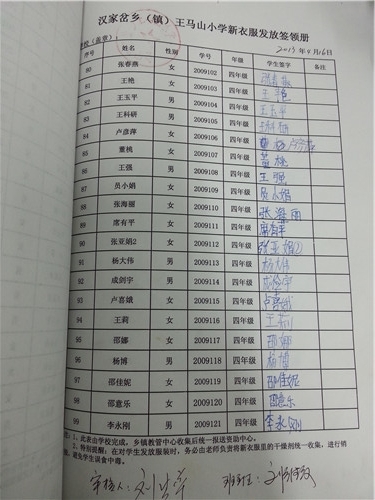 汉家岔乡（镇）王马山小学新衣服发放签领册
学校（盖章）： 2013年4月16日
序号 姓名 性别 学号 年级 学生签字 备注
80 张春燕 女 2009102 四年级 张春燕
81 王艳 女 2009103 四年级 王艳
82 王玉平 男 2009104 四年级 王玉平
83 王科研 男 2009105 四年级 王科研
84 卢彦萍 女 2009106 四年级
85 董桃 女 2009107 四年级 董桃
86 王强 男 2009108 四年级 王强
87 员小娟 女 2009109 四年级 员小娟
88 张海丽 女 2009110 四年级 张海丽
89 席有平 女 2009111 四年级 席有平
90 张亚娟2 女 2009112 四年级 张亚娟②
91 杨大伟 男 2009113 四年级 杨大伟
92 成剑宇 男 2009114 四年级 成剑宇
93 卢喜娥 女 2009115 四年级 卢喜娥
94 王莉 女 2009116 四年级 王莉
95 邵娜 女 2009117 四年级 邵娜
96 杨博 男 2009118 四年级 杨博
97 邵佳妮 女 2009119 四年级 邵佳妮
98 邵意乐 女 2009120 四年级 邵意乐
99 李永刚 男 2009121 四年级 李永刚
注：1、此表由学校完成，乡镇教管中心收集后统一报送资助中心。
2、特别提醒：在对学生发放服装时，务必由老师负责将新衣服里的干燥剂统一收集，进行销
毁，避免学生误食中毒。
审核人： 班主任：